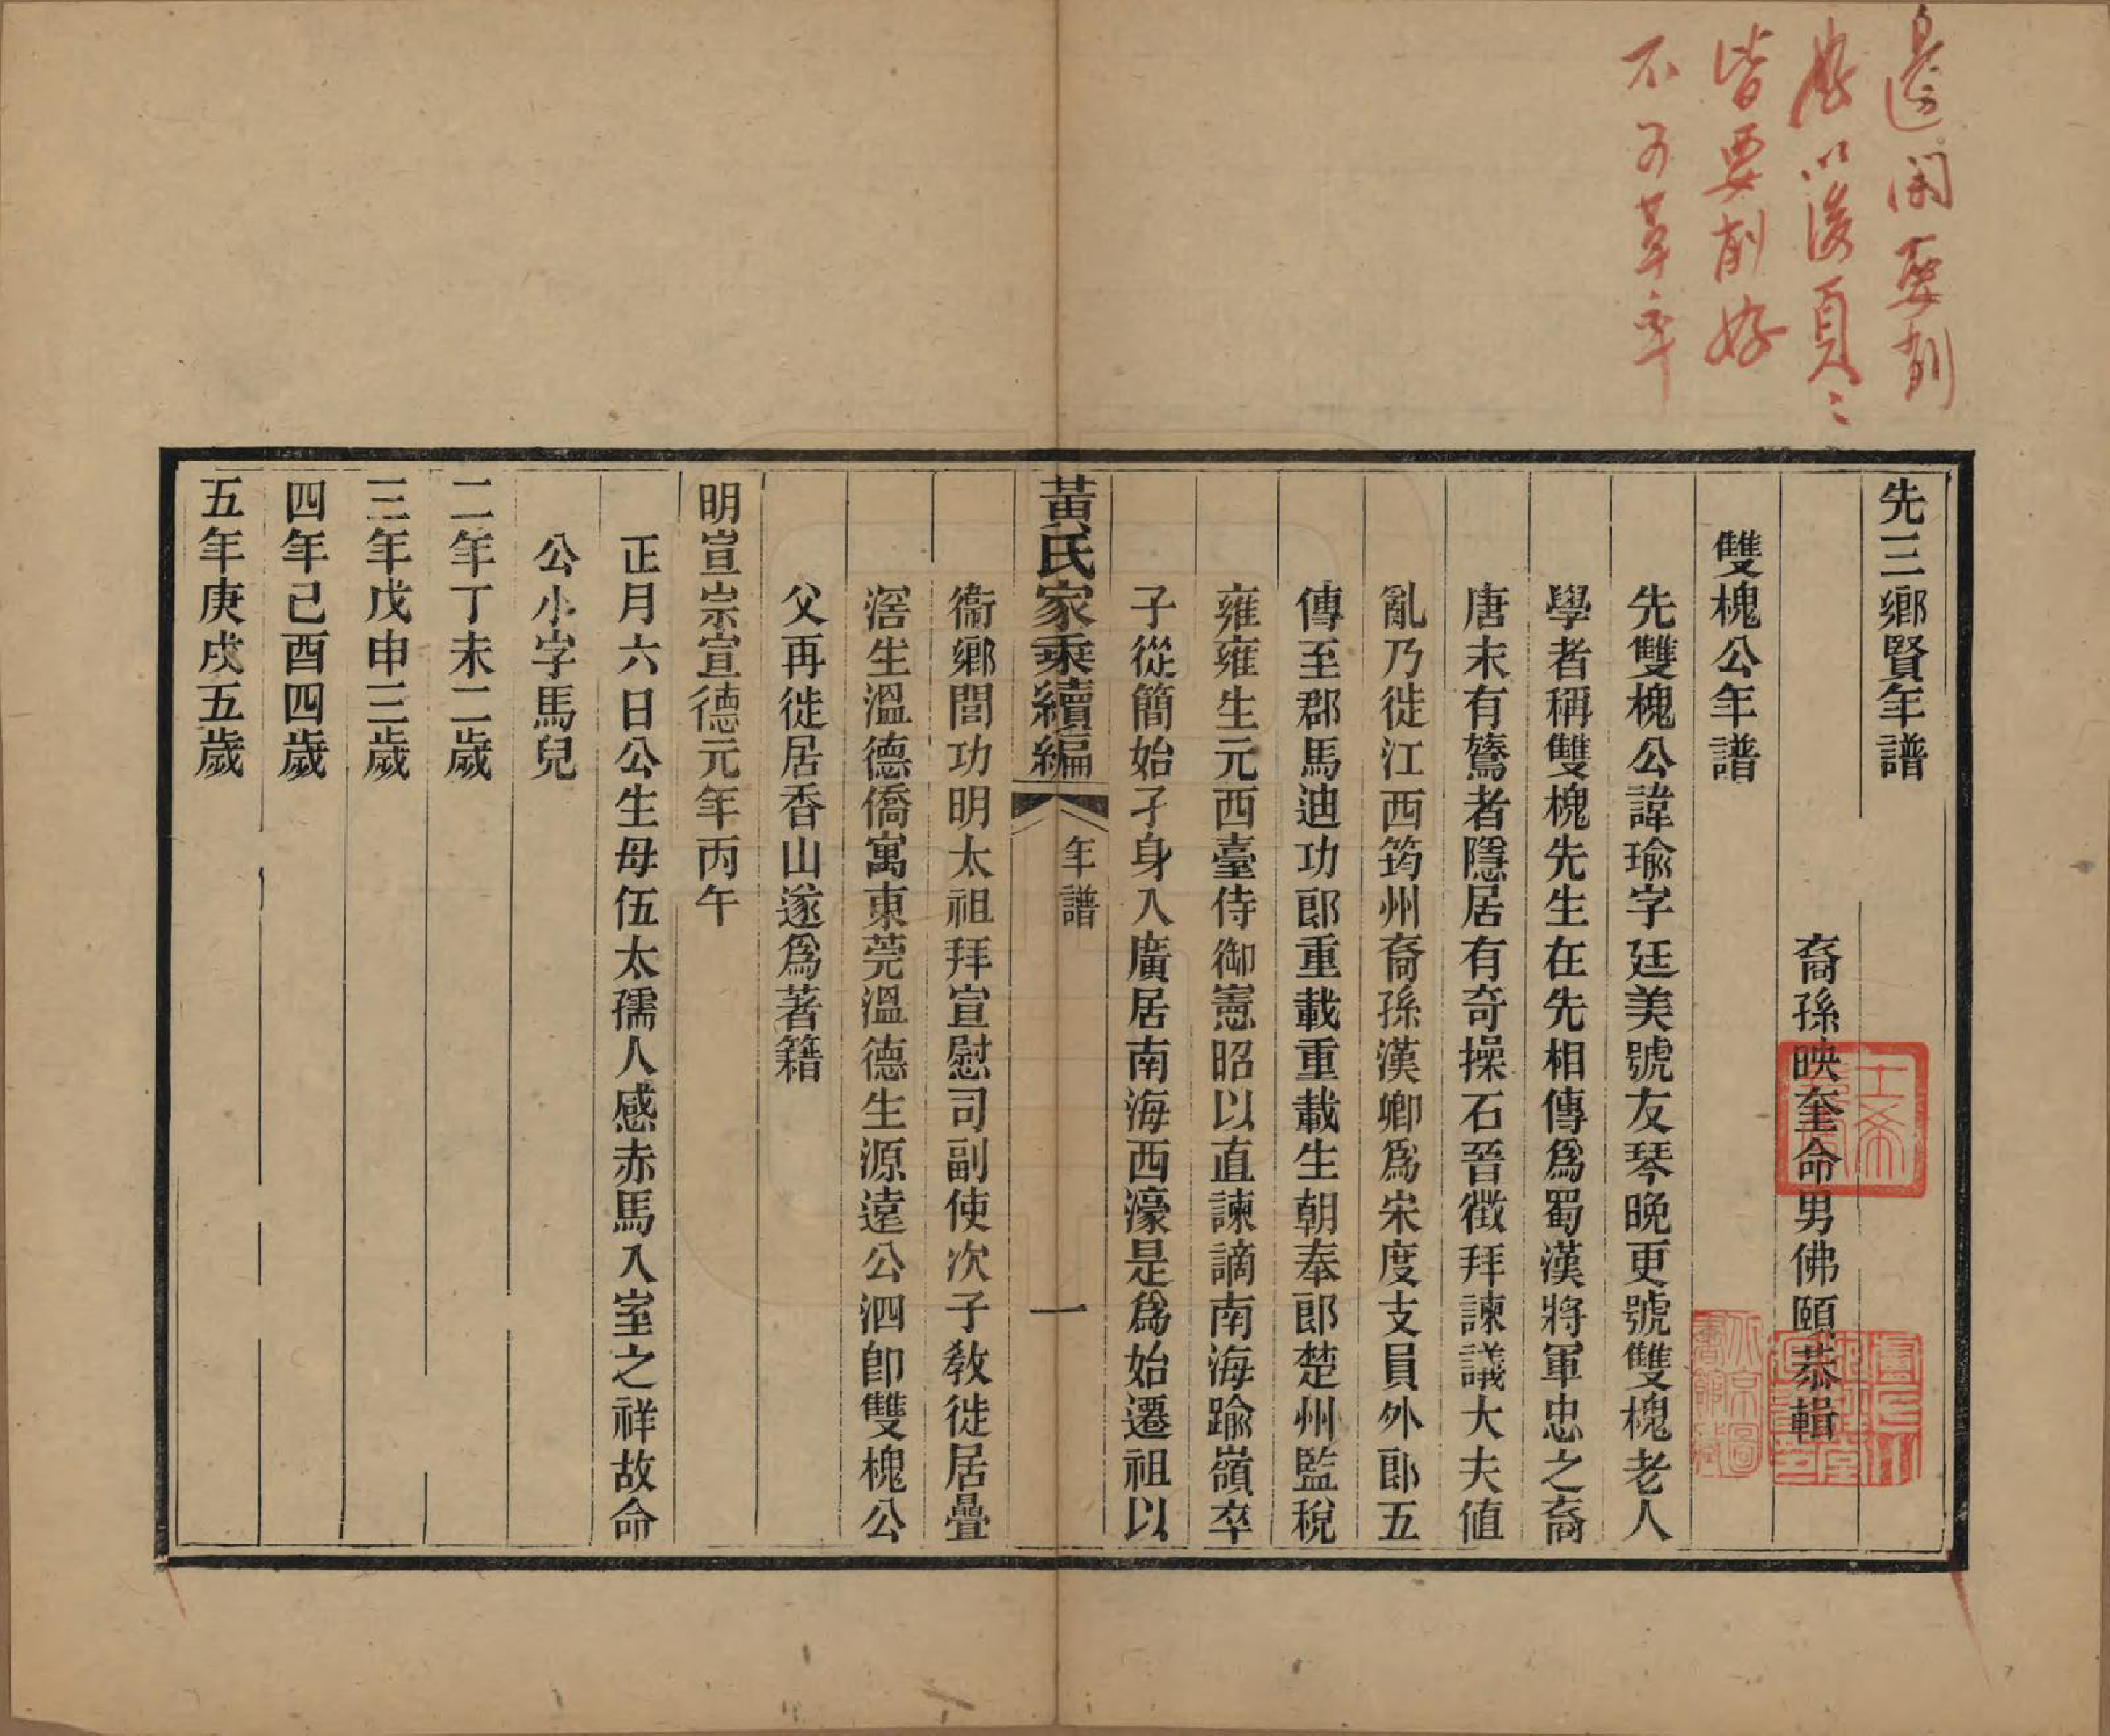 邊闌要刻
好以後頁〻
皆要刻好
不可草率
先三鄉賢年譜
裔孫映奎命男佛頤恭輯
雙槐公年譜
先雙槐公諱瑜字廷美號友琴晚更號雙槐老人
學者稱雙槐先生在先相傳爲蜀漢將軍忠之裔
唐末有鷟者隱居有奇操石晉徵拜諫議大夫值
亂乃徙江西筠州裔孫漢卿爲宋度支員外郎五
傳至郡馬迪功郎重載重載生朝奉郎楚州監稅
雍雍生元西臺侍御憲昭以直諫謫南海踰嶺卒
子從簡始孑身入廣居南海西濠是爲始遷祖以
黃氏家乘續編
年譜
一
衞鄉閭功明太祖拜宣慰司副使次子教徙居疊
滘生溫德僑寓東莞溫德生源遠公泗卽雙槐公
父再徙居香山遂爲著籍
明宣宗宣德元年丙午
正月六日公生母伍太孺人感赤馬入室之祥故命
公小字馬兒
二年丁未二歲
三年戊申三歲
四年己酉四歲
五年庚戌五歲